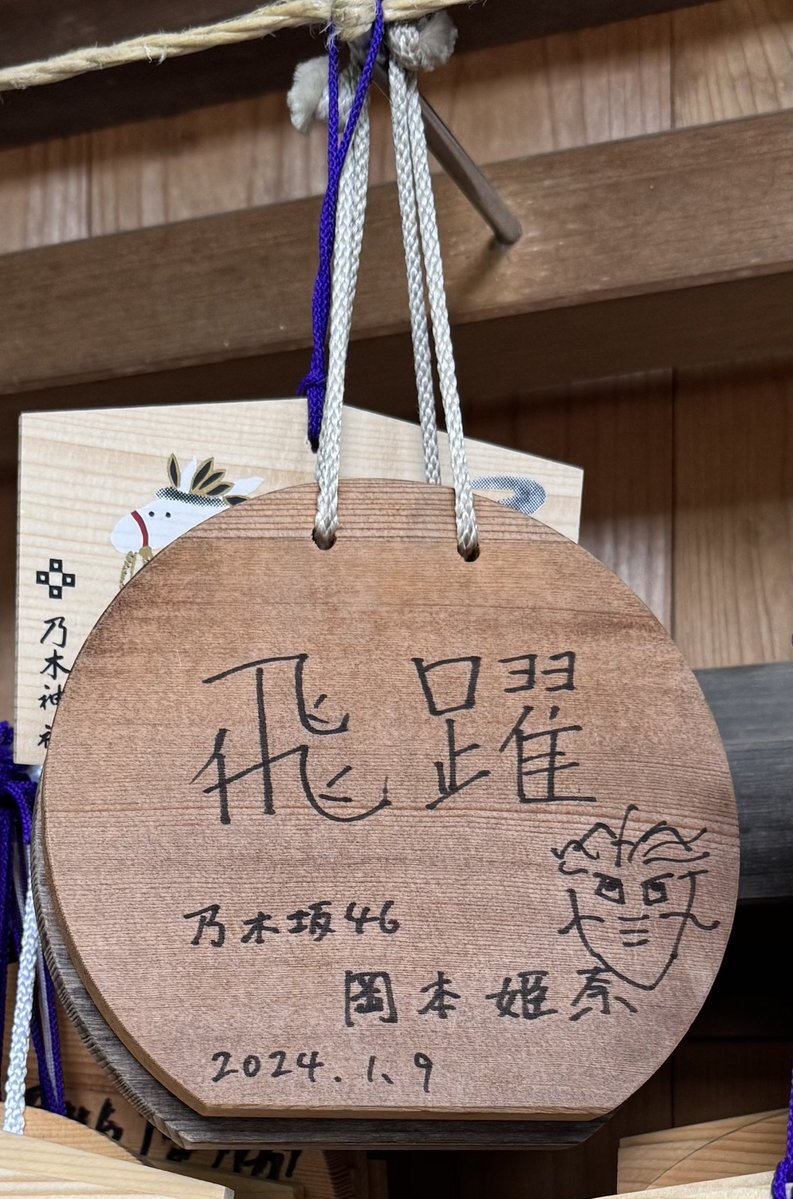 飛躍
乃木坂46
岡本姫奈
2024.1.9
乃木神